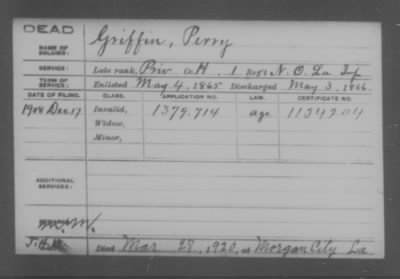 DEAD
NAME OF SOLDIER: Griffin, Perry
SERVICE: Late rank, Priv Co. H, 1 Reg't N. O. La Inf
TERM OF SERVICE: Enlisted May 4, 1865 Discharged May 3, 1866.
DATE OF FILING. CLASS. APPLICATION NO. LAW. CERTIFICATE NO.
1908 Dec 17 Invalid, 1379.714 age 1134904
Widow,
Minor,
ADDITIONAL SERVICES:
Died Mar 27, 1920, at Morgan City La